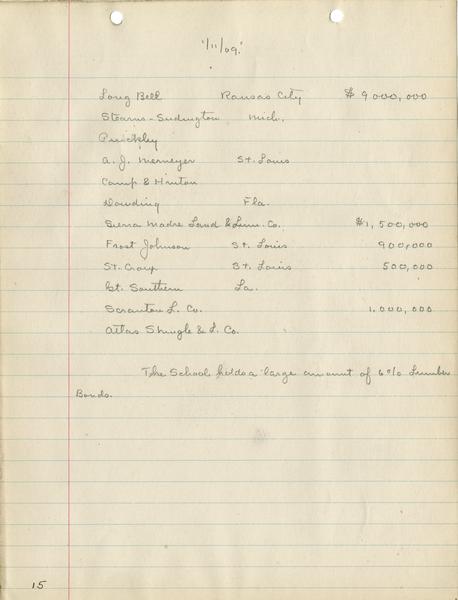 1/11/09.
Long Bell Kansas City $9000,000
Stearns-Ludington Mich.
Quickley
A. J. Niemeyer St. Louis
Camp & Hinton
Dowding Fla.
Sierra Madre Land & Lum. Co. $1,500,000
Frost Johnson St. Louis 900,000
St. Croix St. Louis 500,000
Gt. Southern La.
Scranton L. Co. 1,000,000
Atlas Shingle & L. Co.
The School holds a large amount of 6% Lumber
Bonds.
15